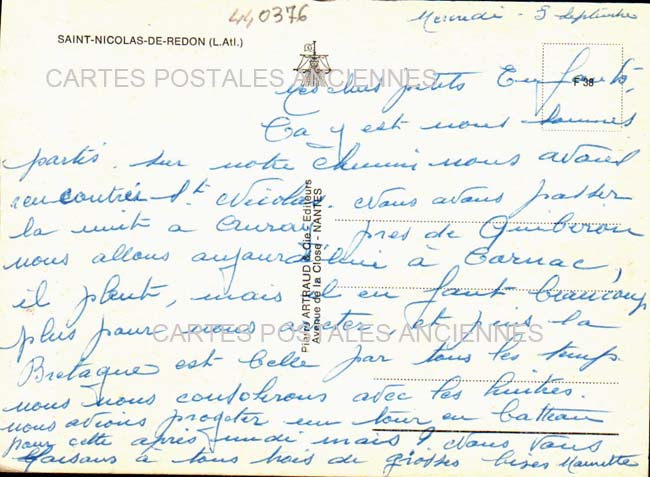 440376
Mercredi - 5 Septembre
SAINT-NICOLAS-DE-REDON (L.Atl.)
CARTES POSTALES ANCIENNES
F 38
Mes chers petits Enfants,
Ça y est nous sommes
partis. sur notre chemin nous avons
rencontrés St. Nicolas. Nous avons passer
la nuit a Auray près de Quiberon
nous allons aujourd'hui à Carnac,
il pleut, mais il en faut beaucoup
plus pour nous arreter et puis la
CARTES POSTALES ANCIENNES
Bretagne est belle par tous les temps.
nous nous consolerons avec les huitres.
nous avions projeter un tour en batteau
pour cette après-midi mais ? Nous vous
faisons à tous trois de grosses bises Mamette
Pierre ARTRAUD & Cie - Editeurs
Avenue de la Close - NANTES